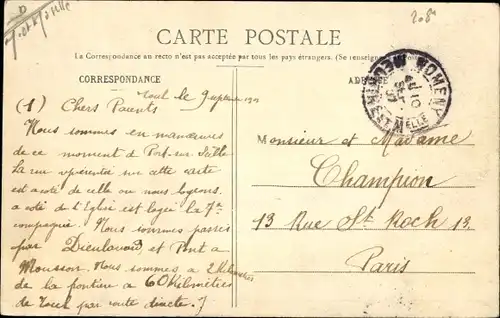 D
M.-et-Moselle
208a
CARTE POSTALE
La Correspondance au recto n'est pas acceptée par tous les pays étrangers. (Se renseigner
CORRESPONDANCE
NOMENY
MEURTHE-ET-MELLE
10
SEPT
Toul le 9 septembre
(1) Chers Parents
Nous sommes en manœuvres
de ce moment à Port-sur-Seille
La rue représenté sur cette carte
est a coté de celle ou nous logeons
a coté de l'Eglise est logée la 7e
compagnie. Nous sommes passés
par Dieulouard et Pont a
Mousson. Nous sommes a 2 Kilomètres
de la frontière a 60 Kilométres
de Toul par route directe.
Monsieur et Madame
Champion
13 Rue St Roch 13.
Paris